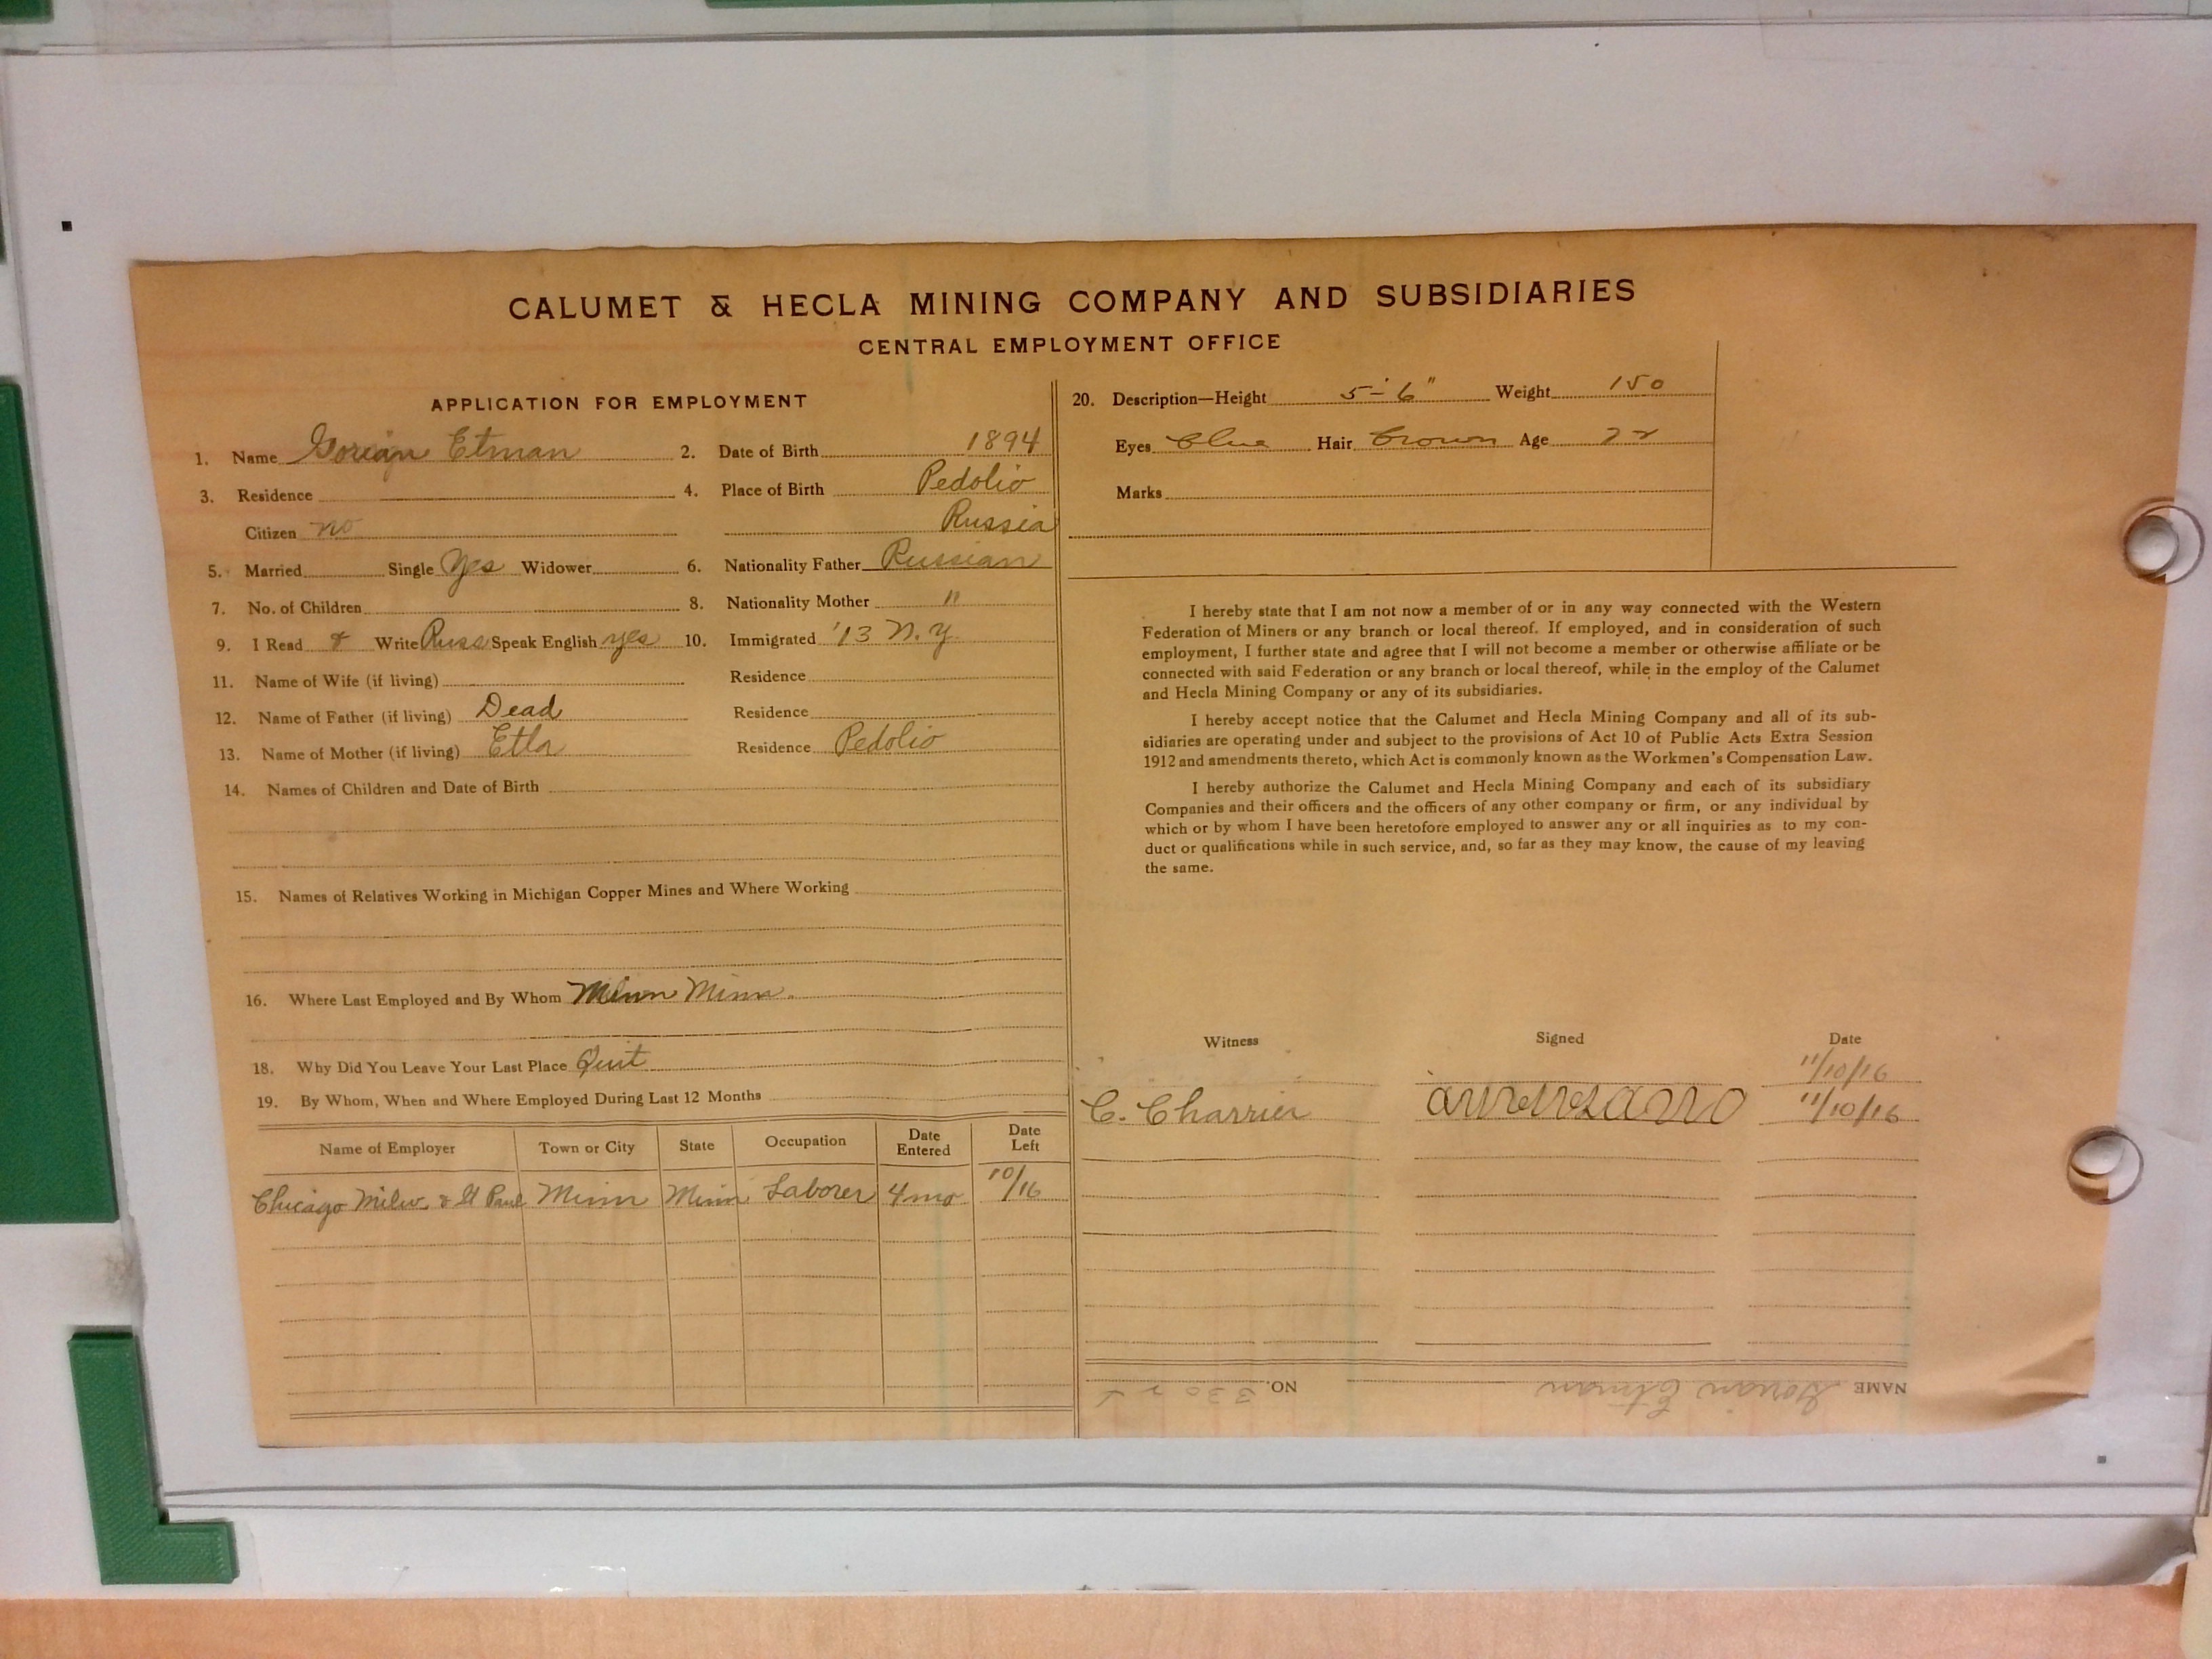 CALUMET & HECLA MINING COMPANY AND SUBSIDIARIES
CENTRAL EMPLOYMENT OFFICE
APPLICATION FOR EMPLOYMENT
1. Name Gorian Etman 2. Date of Birth 1894
3. Residence 4. Place of Birth Pedolio
Citizen no Russia
5. Married Single Yes Widower 6. Nationality Father Russian
7. No. of Children 8. Nationality Mother "
9. I Read & Write Russ Speak English yes 10. Immigrated '13 N.Y.
11. Name of Wife (if living) Residence
12. Name of Father (if living) Dead Residence
13. Name of Mother (if living) Etla Residence Pedolio
14. Names of Children and Date of Birth
15. Names of Relatives Working in Michigan Copper Mines and Where Working
16. Where Last Employed and By Whom Minn Minn.
18. Why Did You Leave Your Last Place Quit
19. By Whom, When and Where Employed During Last 12 Months
Name of Employer Town or City State Occupation Date Entered Date Left
Chicago Milw. & St Paul Minn Minn Laborer 4 mo 10/16
20. Description—Height 5'-6" Weight 150
Eyes blue Hair brown Age 22
Marks
I hereby state that I am not now a member of or in any way connected with the Western
Federation of Miners or any branch or local thereof. If employed, and in consideration of such
employment, I further state and agree that I will not become a member or otherwise affiliate or be
connected with said Federation or any branch or local thereof, while in the employ of the Calumet
and Hecla Mining Company or any of its subsidiaries.
I hereby accept notice that the Calumet and Hecla Mining Company and all of its sub-
sidiaries are operating under and subject to the provisions of Act 10 of Public Acts Extra Session
1912 and amendments thereto, which Act is commonly known as the Workmen's Compensation Law.
I hereby authorize the Calumet and Hecla Mining Company and each of its subsidiary
Companies and their officers and the officers of any other company or firm, or any individual by
which or by whom I have been heretofore employed to answer any or all inquiries as to my con-
duct or qualifications while in such service, and, so far as they may know, the cause of my leaving
the same.
Witness Signed Date
11/10/16
C. Charrier 11/10/16
NAME Gorian Etman NO.